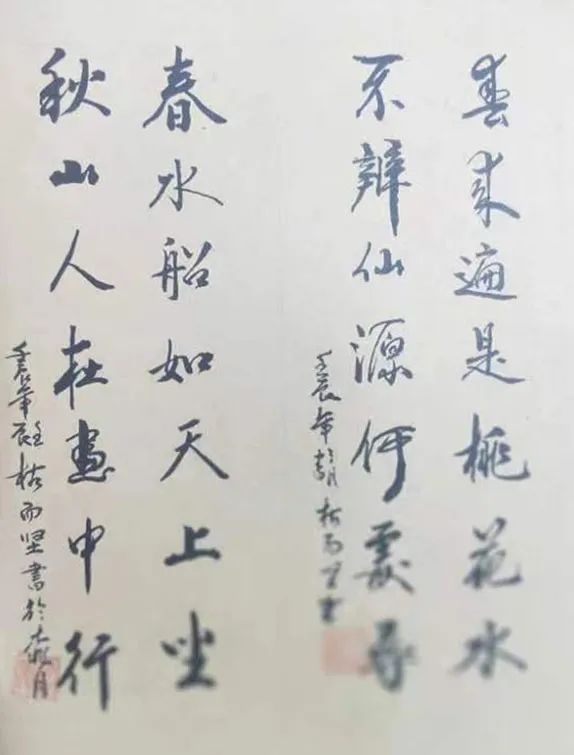 春来遍是桃花水
不辨仙源何处寻
壬辰年
春水船如天上坐
秋山人在画中行
壬辰年 而坚书于 月